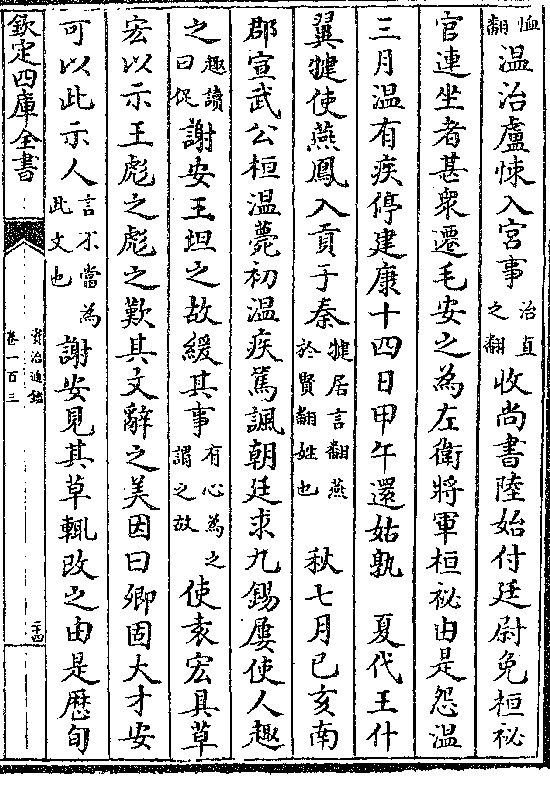 恤翻温治盧悚入宮事治直之翻收尚書陸始付廷尉免桓祕
官連坐者甚衆遷毛安之為左衛將軍桓祕由是怨温
三月温有疾停建康十四日甲午還姑孰　夏代王什
翼犍使燕鳳入貢于秦犍居言翻燕於賢翻姓也　秋七月己亥南
郡宣武公桓温薨初温疾篤諷朝廷求九錫屢使人趣
之趣讀曰促謝安王坦之故緩其事有心為之謂之故使袁宏具草
宏以示王彪之彪之歎其文辭之美因曰卿固大才安
可以此示人言不當為此文也謝安見其草輒改之由是歴旬
欽定四庫全書
資治通鑑
卷一百三
二十四